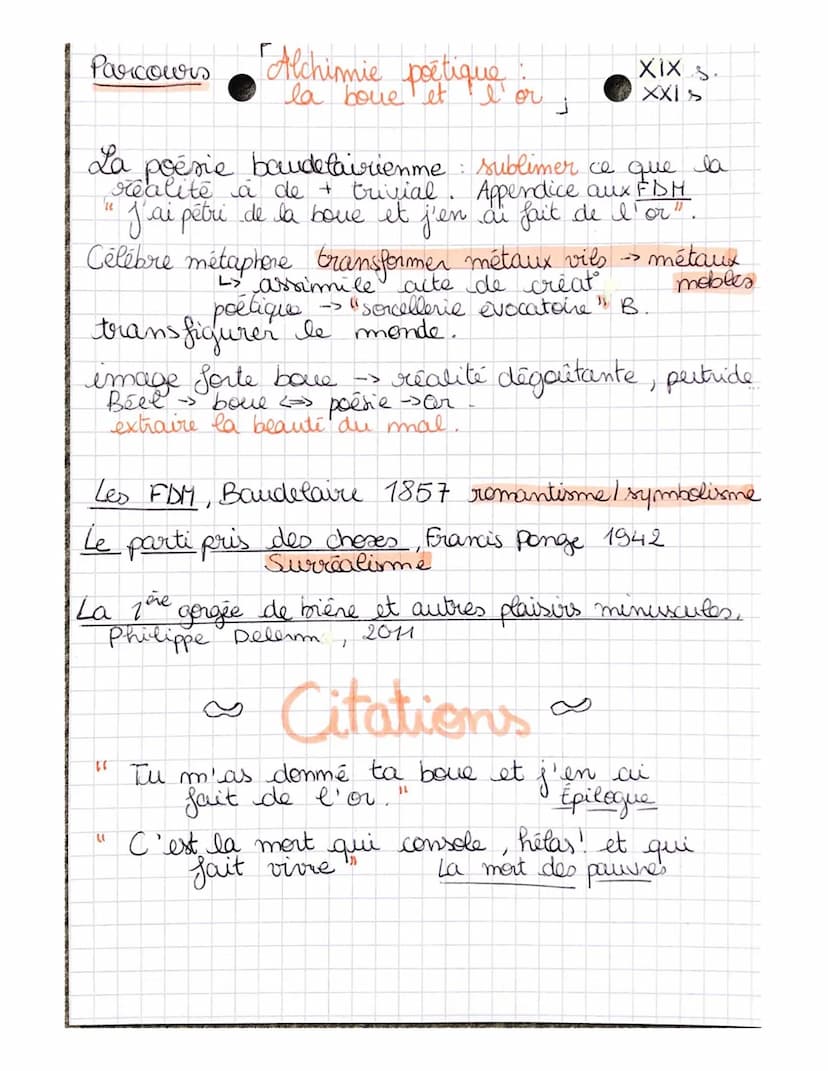 Parcours « Alchimie poëtique : XIX s.
la boue et l'or » XXI s
La poésie baudelairienne : sublimer ce que la
réalité à de + trivial. Appendice aux FDM
" J'ai pétri de la boue et j'en ai fait de l'or".
Célèbre métaphore transformer métaux vils -> métaux
↳ assimile acte de créat° nobles
poétique -> "sorcellerie évocatoire" B.
transfigurer le monde.
image forte boue -> réalité dégoûtante, putride
Béel -> boue <=> poésie -> Or.
extraire la beauté du mal.
Les FDM, Baudelaire 1857 romantisme/symbolisme
Le parti pris des choses, Francis Ponge 1942
Surréalisme
La 1ère gorgée de bière et autres plaisirs minuscules,
Philippe Delerm, 2011
Citations
" Tu m'as donné ta boue et j'en ai
fait de l'or." Épilogue
" C'est la mort qui console, hélas! et qui
fait vivre" La mort des pauvres